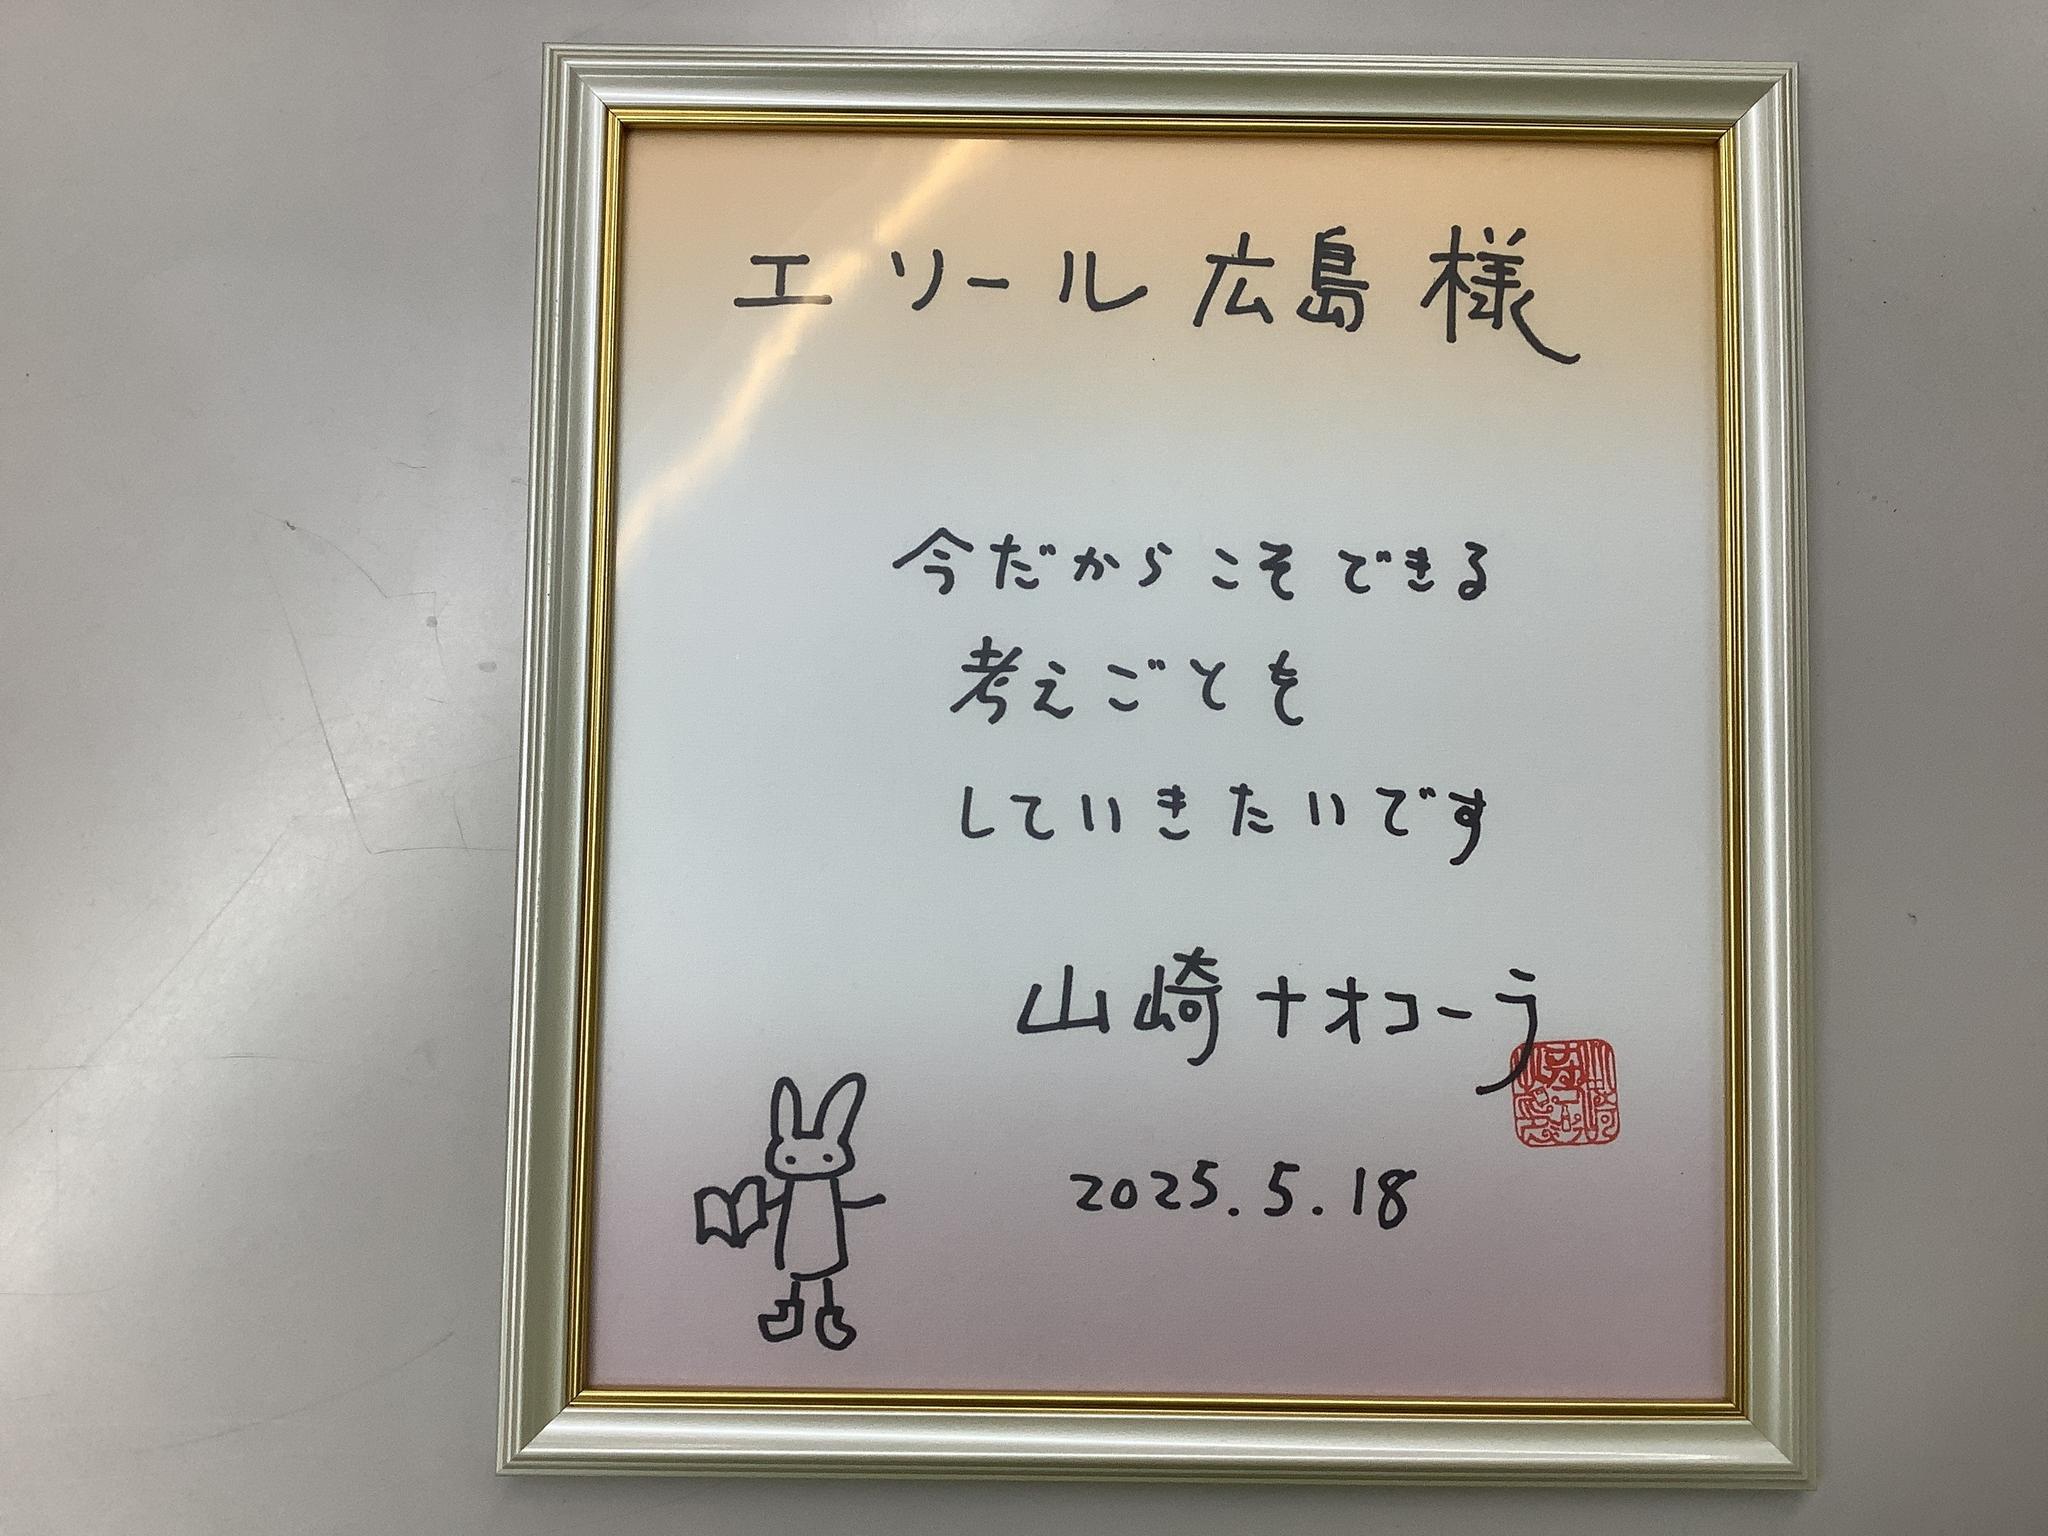 エソール広島様
今だからこそできる
考えごとも
していきたいです
山崎ナオコーラ
2025.5.18